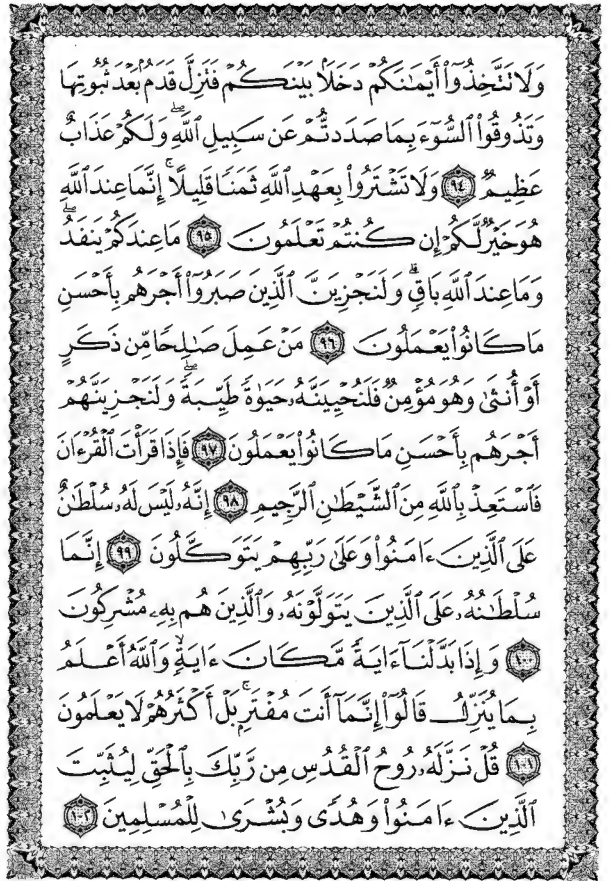 وَلَا تَتَّخِذُوٓا۟ أَيْمَـٰنَكُمْ دَخَلًۢا بَيْنَكُمْ فَتَزِلَّ قَدَمٌۢ بَعْدَ ثُبُوتِهَا
وَتَذُوقُوا۟ ٱلسُّوٓءَ بِمَا صَدَدتُّمْ عَن سَبِيلِ ٱللَّهِ ۖ وَلَكُمْ عَذَابٌ
عَظِيمٌ ۝٩٤ وَلَا تَشْتَرُوا۟ بِعَهْدِ ٱللَّهِ ثَمَنًا قَلِيلًا ۚ إِنَّمَا عِندَ ٱللَّهِ
هُوَ خَيْرٌ لَّكُمْ إِن كُنتُمْ تَعْلَمُونَ ۝٩٥ مَا عِندَكُمْ يَنفَدُ ۖ
وَمَا عِندَ ٱللَّهِ بَاقٍ ۗ وَلَنَجْزِيَنَّ ٱلَّذِينَ صَبَرُوٓا۟ أَجْرَهُم بِأَحْسَنِ
مَا كَانُوا۟ يَعْمَلُونَ ۝٩٦ مَنْ عَمِلَ صَـٰلِحًا مِّن ذَكَرٍ
أَوْ أُنثَىٰ وَهُوَ مُؤْمِنٌ فَلَنُحْيِيَنَّهُۥ حَيَوٰةً طَيِّبَةً ۖ وَلَنَجْزِيَنَّهُمْ
أَجْرَهُم بِأَحْسَنِ مَا كَانُوا۟ يَعْمَلُونَ ۝٩٧ فَإِذَا قَرَأْتَ ٱلْقُرْءَانَ
فَٱسْتَعِذْ بِٱللَّهِ مِنَ ٱلشَّيْطَـٰنِ ٱلرَّجِيمِ ۝٩٨ إِنَّهُۥ لَيْسَ لَهُۥ سُلْطَـٰنٌ
عَلَى ٱلَّذِينَ ءَامَنُوا۟ وَعَلَىٰ رَبِّهِمْ يَتَوَكَّلُونَ ۝٩٩ إِنَّمَا
سُلْطَـٰنُهُۥ عَلَى ٱلَّذِينَ يَتَوَلَّوْنَهُۥ وَٱلَّذِينَ هُم بِهِۦ مُشْرِكُونَ
۝١٠٠ وَإِذَا بَدَّلْنَآ ءَايَةً مَّكَانَ ءَايَةٍ ۙ وَٱللَّهُ أَعْلَمُ
بِمَا يُنَزِّلُ قَالُوٓا۟ إِنَّمَآ أَنتَ مُفْتَرٍۭ ۚ بَلْ أَكْثَرُهُمْ لَا يَعْلَمُونَ
۝١٠١ قُلْ نَزَّلَهُۥ رُوحُ ٱلْقُدُسِ مِن رَّبِّكَ بِٱلْحَقِّ لِيُثَبِّتَ
ٱلَّذِينَ ءَامَنُوا۟ وَهُدًى وَبُشْرَىٰ لِلْمُسْلِمِينَ ۝١٠٢